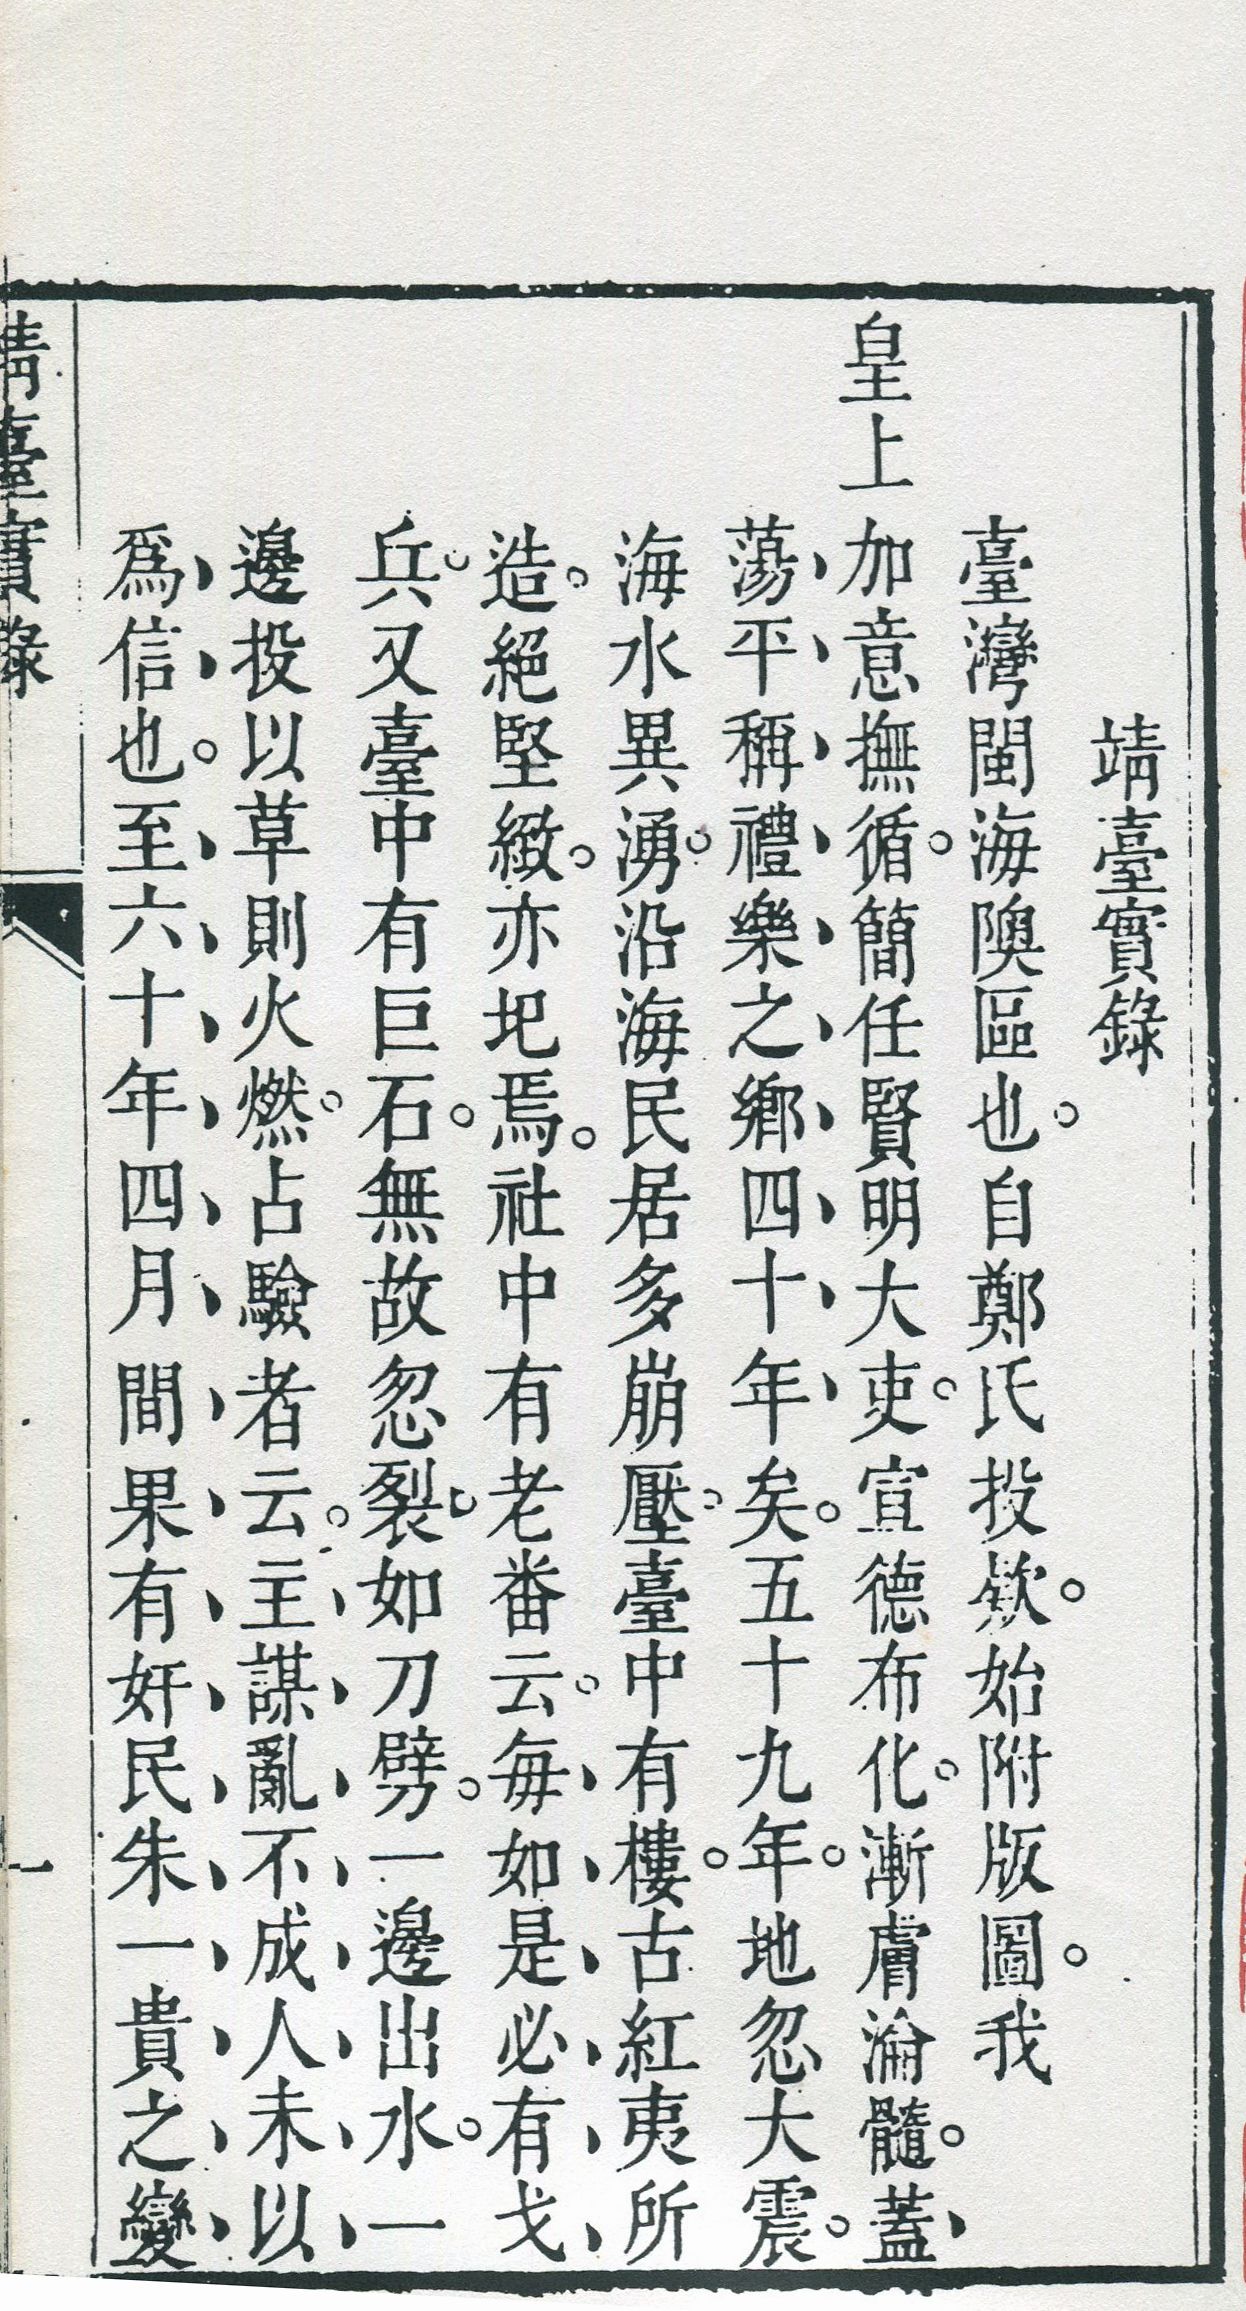 靖臺實錄
臺灣閩海隩區也。自鄭氏投欵。始附版圖。我
皇上加意撫循。簡任賢明大吏。宣德布化。漸膚淪髓。蓋、
蕩、平、稱、禮、樂、之、鄉、四、十、年、矣。五十九年。地忽大震。
海水異湧。沿海民居多崩壓。臺中有樓。古紅夷所
造。絕堅緻。亦圯焉。社中有老番云。每、如、是、必、有、戈、
兵。又臺中有巨石。無故忽裂。如刀劈。一邊出水。一
邊投以草則火燃。占驗者云。主、謀、亂、不、成、人、未、以、
為、信、也。至、六、十、年、四、月、間、果、有、奸、民、朱、一、貴、之、變、
靖臺實錄
一